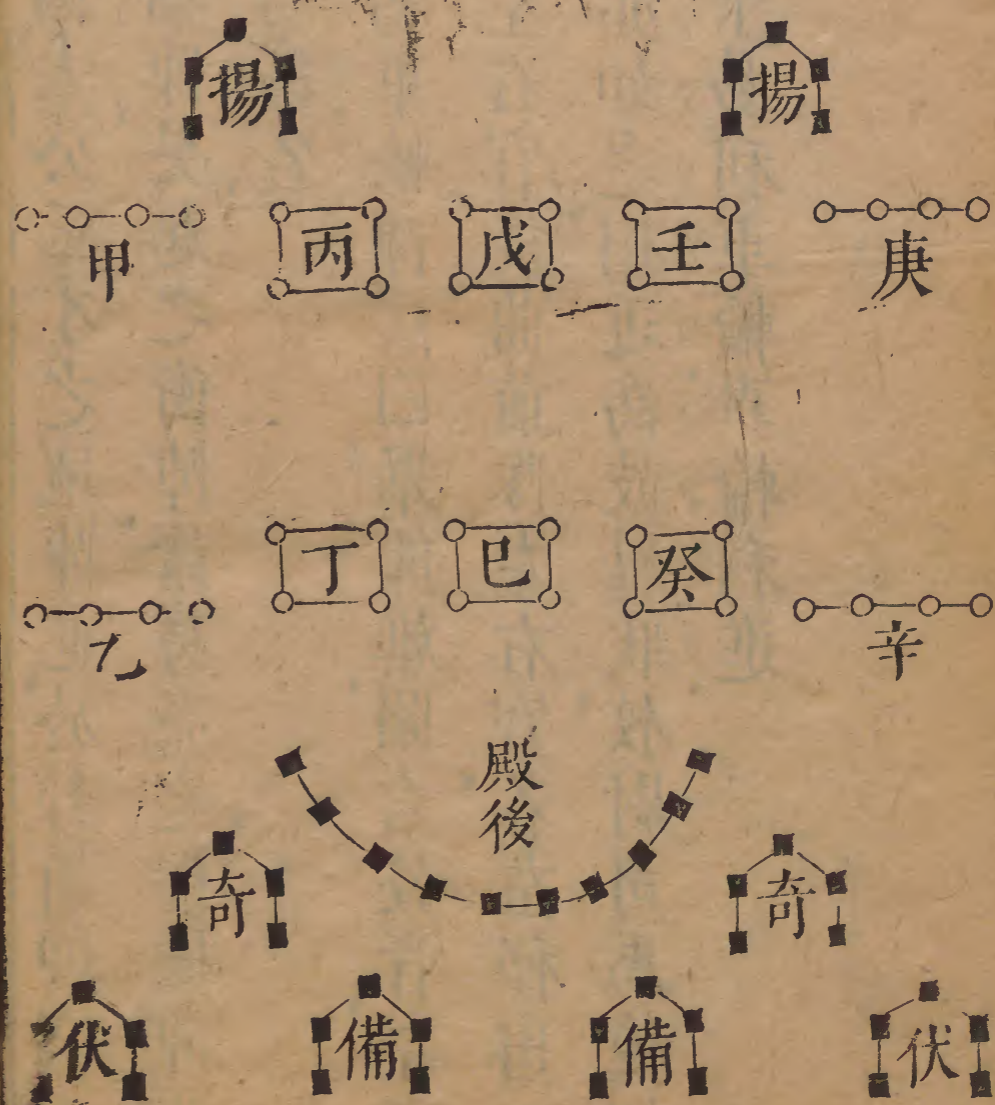 揚 揚
甲 丙 戊 壬 庚
丁 巳 癸
乙 辛
殿後
奇 奇
伏 備 備 伏